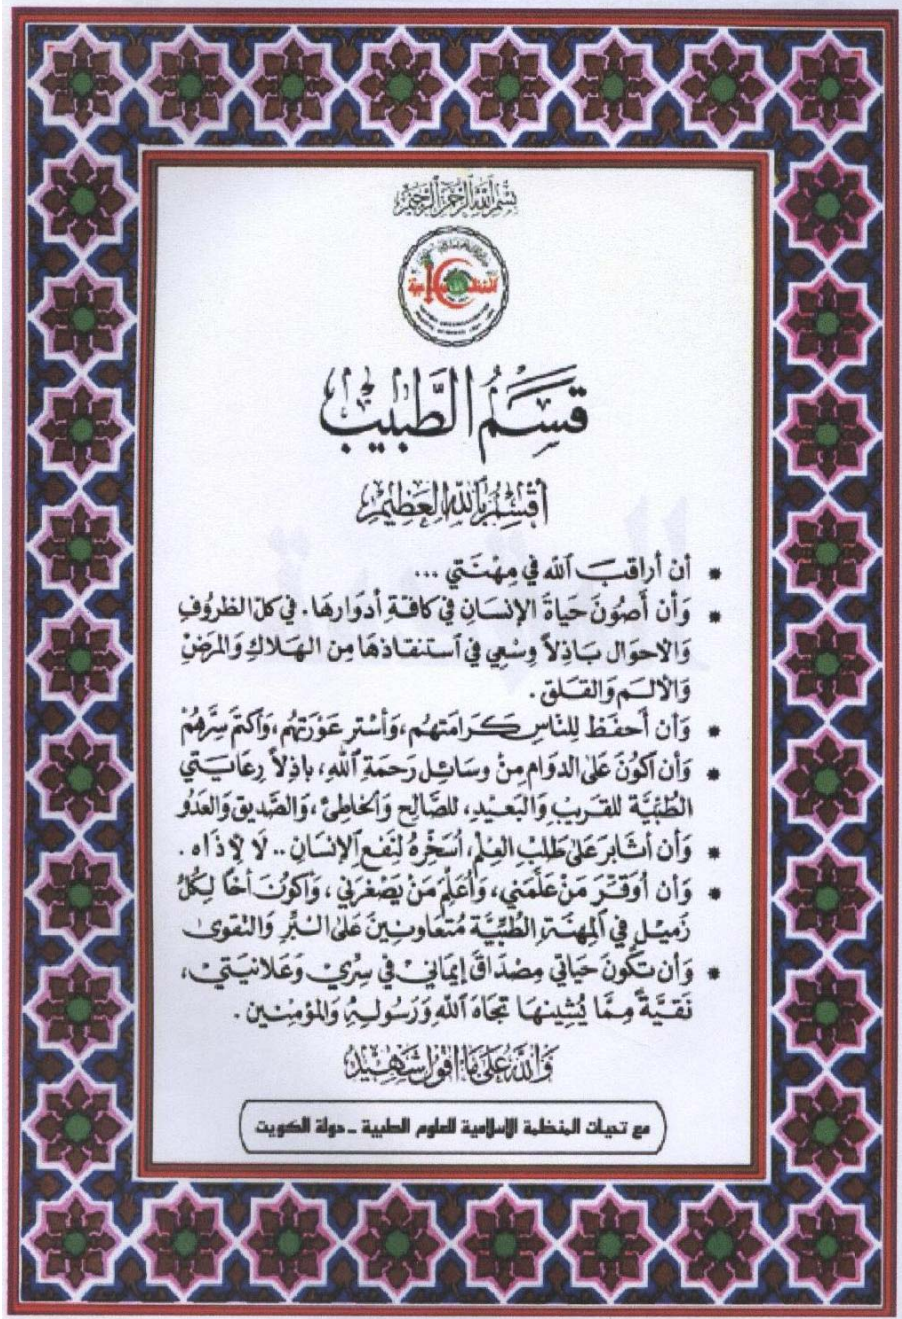 بسم الله الرحمن الرحيم
قَسَمُ الطَّبيب
أقسم بالله العظيم
* أن أراقبَ الله في مِهْنَتي ...
* وَأن أصُونَ حَيَاةَ الإنسَانِ في كافةِ أدوَارهَا. في كلّ الظروُفِ
وَالاحوَال بَاذِلاً وسْعِي في استنقاذهَا مِن الهَلاكِ وَالمَرضْ
وَالألَم وَالقَلق.
* وَأن أحفَظ لِلنّاسِ كَرَامَتهُم، وَأسْتر عَوْرَتهُم، وَاكتم سِرَّهُمْ
* وَأن أكوُنَ عَلى الدوَام مِنْ وسَائل رَحمَةِ اللهِ، باذِلاً رِعَايَتي
الطُبّيَّة للقَريبِ وَالبَعيدِ، للصَّالِح وَالخاطِئ، وَالصَّديق وَالعَدُو
* وَأن أثابرَ عَلىَ طَلبْ العِلْم، أسَخّرهُ لِنَفع الإنسَان .. لَا لأذَاه.
* وَأن أوَقّرَ مَنْ عَلّمَني، وَأعَلّمَ مَنْ يَصْغرَني، وَأكوُنَ أخًا لِكُلّ
زَميْل في المِهنَةِ الطُبّيَّة مُتعَاونِينَ عَلىَ البرّ وَالتقوىَ
* وَأن تكُونَ حَيَاتي مِصْدَاقَ إيمَاني في سِرّي وَعَلانيَتي،
نَقيَّةً مِمَّا يُشينهَا تجَاهَ اللهِ وَرَسُولهِ وَالمؤمِنين.
وَاللهُ عَلىَ مَا أقولُ شَهِيْدُ
مع تحيات المنظمة الاسلامية للعلوم الطبية ـ دولة الكويت